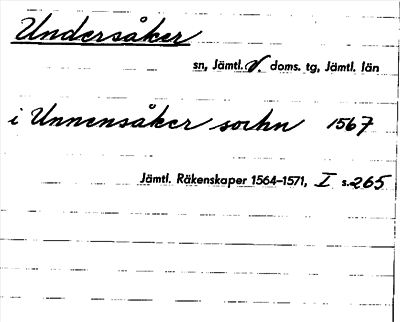 Undersåker
sn, Jämtl. v. doms. tg, Jämtl. län
i Unnensåker sorhn 1567
Jämtl. Räkenskaper 1564–1571, I s. 265